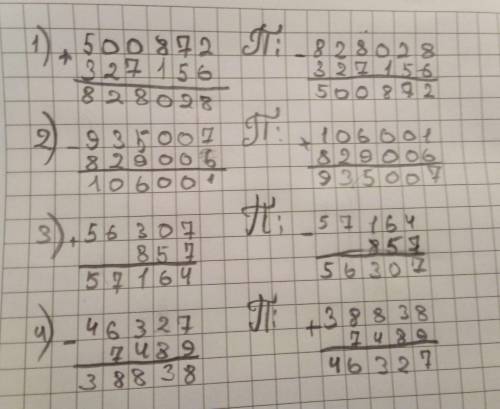 1) + 500872 П: - 828028
327156 327156
828028 500872
2) - 935007 П: + 106001
829006 829006
106001 935007
3) + 56307 П: - 57164
857 857
57164 56307
4) - 46327 П: + 38838
7489 7489
38838 46327